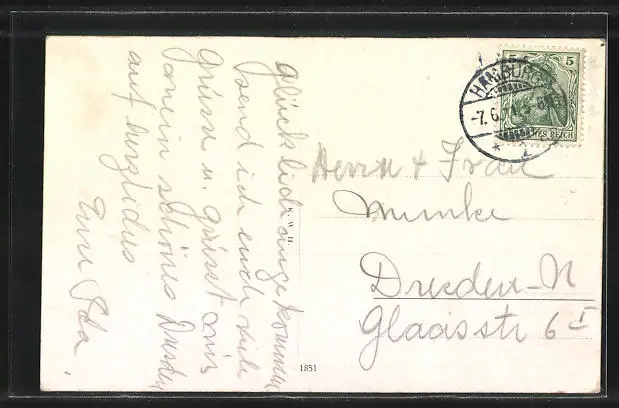 Glücklich angekommen
send ich euch viele
Grüsse u. grüsst mir
mein schönes Dresden
auf herzlichs
Eure Ida.
K. W. H.
1851
HAMBURG
-7.6.
* 1
5
5
DEUTSCHES REICH
Herrn & Frau
Munke
Dresden-N
Glacisstr 6 I